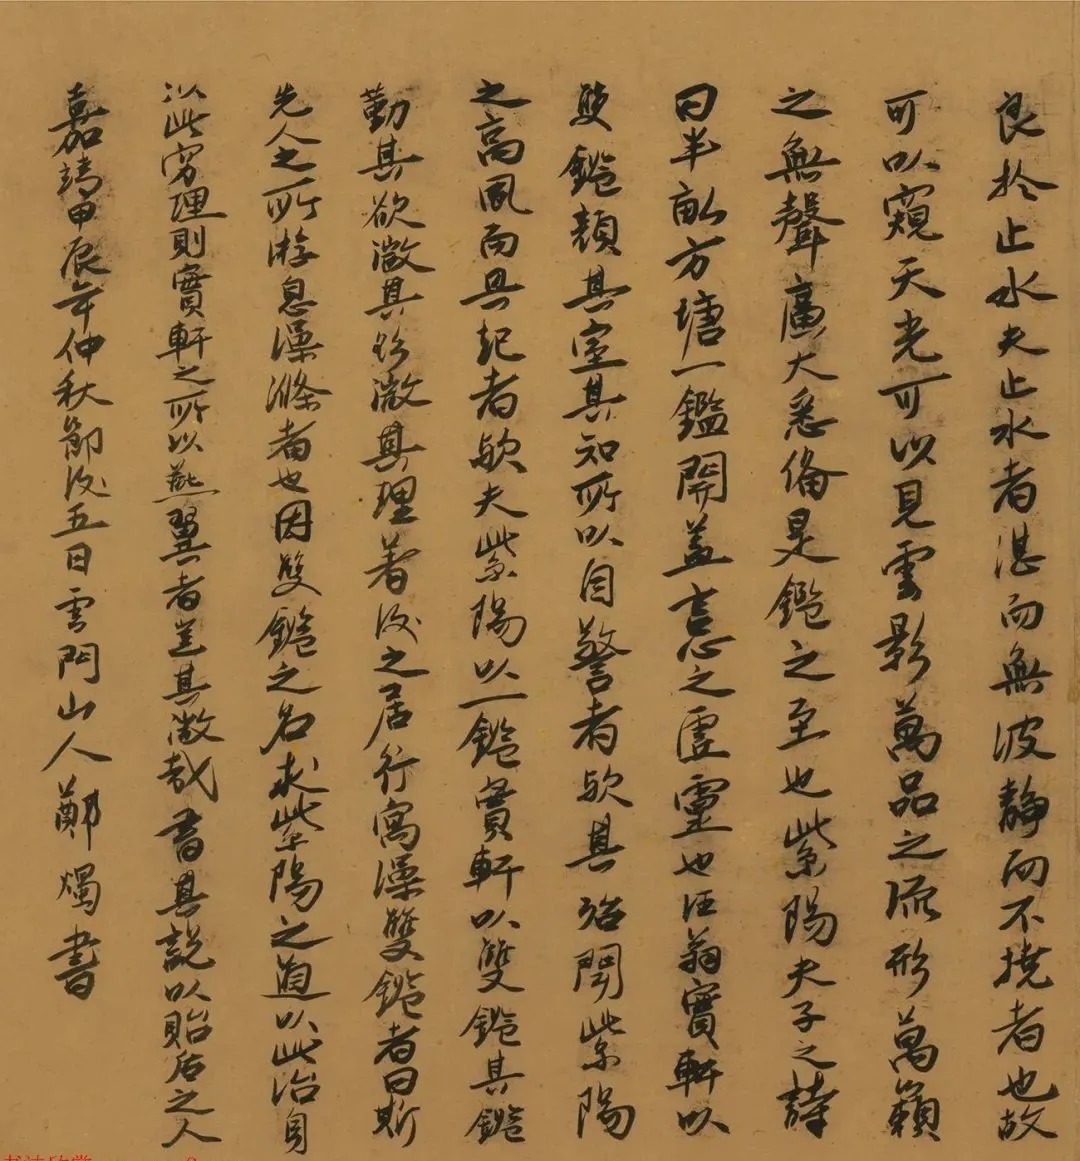 良於止水夫止水者湛而無波靜而不撓者也故
可以窺天光可以見雲影萬品之流形萬籟
之無聲廣大悉俻是鑑之至也紫陽夫子之詩
曰半畝方塘一鑑開盖言心之虛靈也汪翁實軒以
雙鑑顏其室其知所以自警者歟其殆聞紫陽
之高風而興起者歟夫紫陽以一鑑實軒以雙鑑其鑑
勤其欲微其理著後之居行寓澡雙鑑者曰斯
先人之所游息澡滌者也因雙鑑之名求紫陽之道以此治身
以此窮理則實軒之所以燕翼者豈其微哉書其說以貽后之人
嘉靖甲辰年仲秋節後五日雲門山人鄭燭書